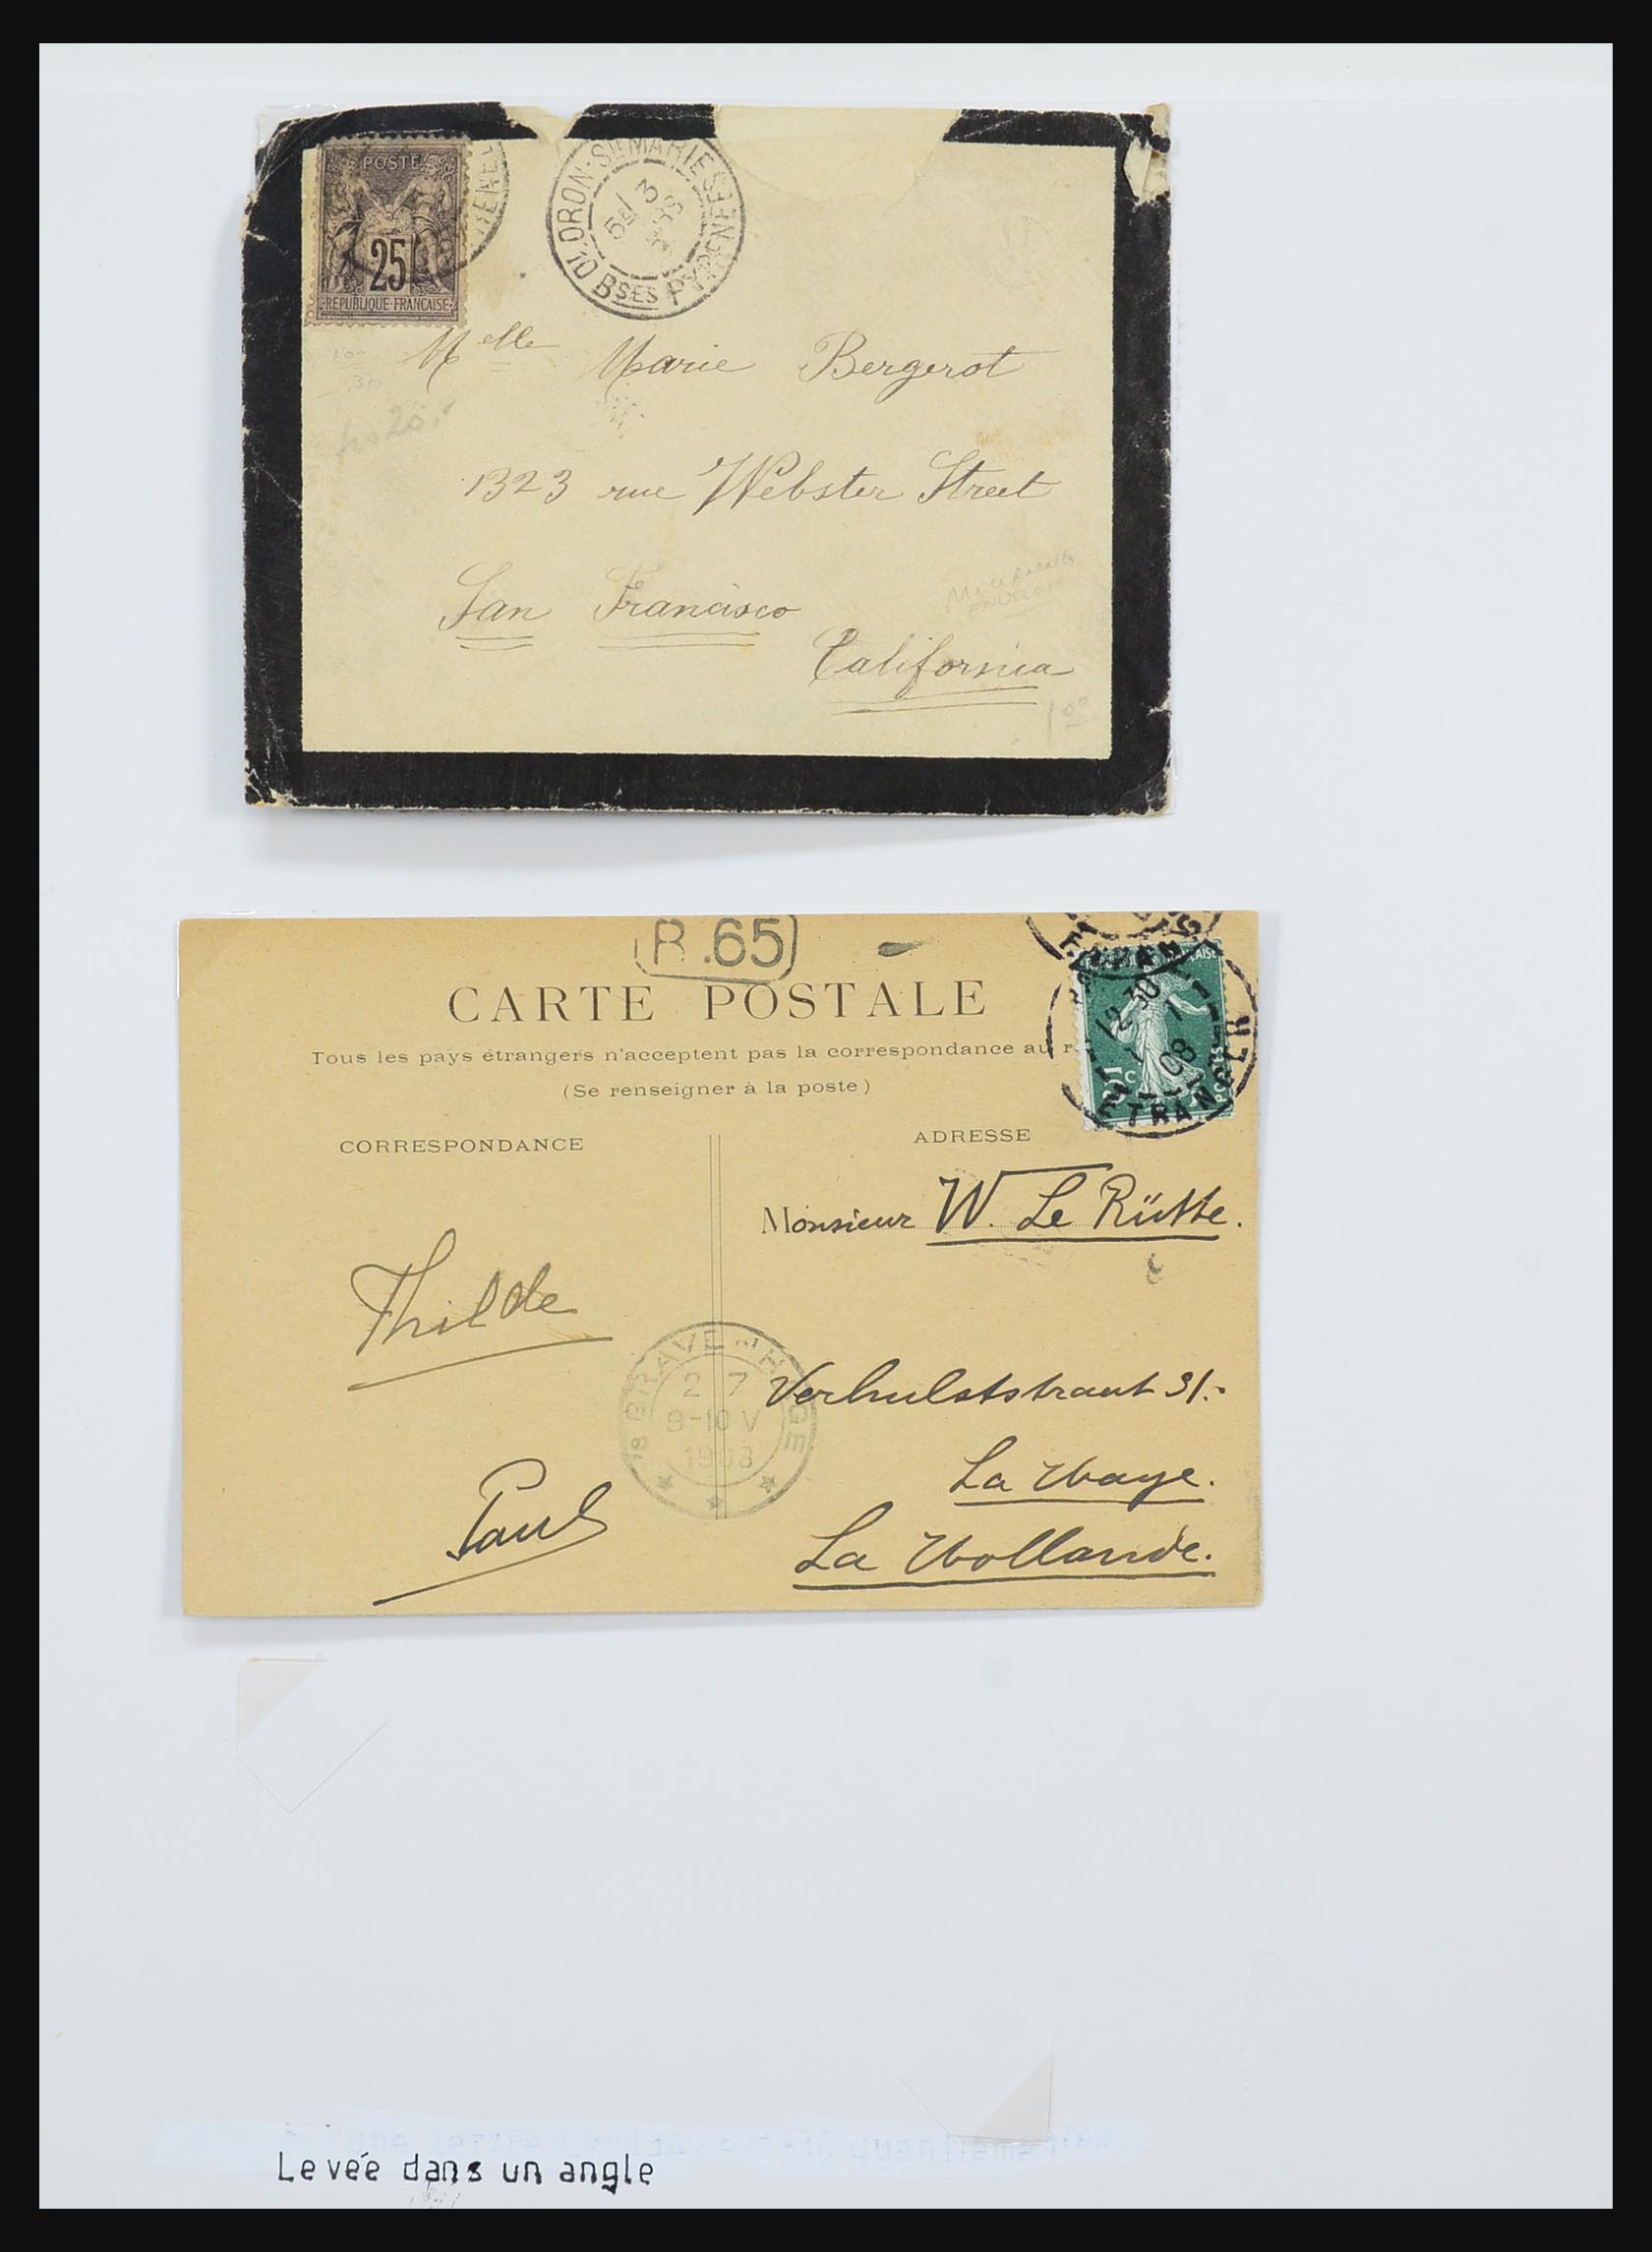 POSTES
25
REPUBLIQUE FRANÇAISE
OLORON-Ste MARIE
Bses PYRENEES
Melle Marie Bergerot
1323 rue Webster Street
San Francisco
California
1 00
R.65
CARTE POSTALE
Tous les pays étrangers n'acceptent pas la correspondance au r
(Se renseigner à la poste)
12 30
1
08
ETRANGER
CORRESPONDANCE
ADRESSE
Monsieur W. Le Rütte.
Thilde
'S GRAVENHAGE
2 7
9-10 V
1908
Verhulststraat 31.-
Paul
La Haye.
La Hollande.
Levée dans un angle